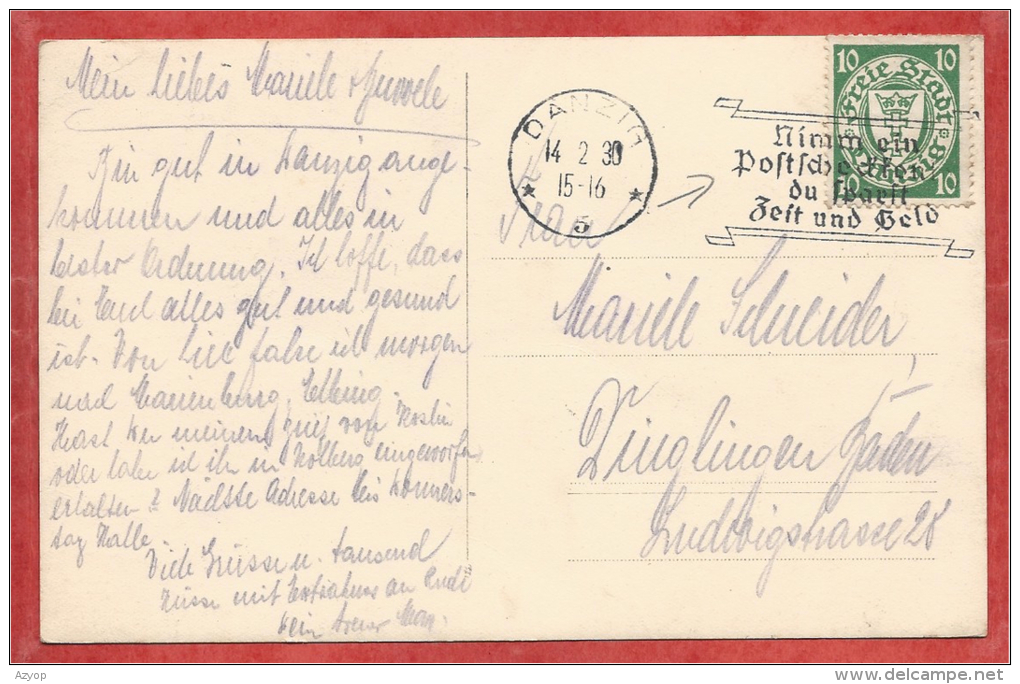 Mein liebes Mariele
Bin gut in Danzig ange-
kommen und alles in
bester Ordnung. Ich hoffe, dass
bei Euch alles gut und gesund
ist. Von hier fahre ich morgen
nach Marienburg, Elbing.
Hast Du meinen Gruß von Köslin
oder habe ich ihn in Kolberg eingeworfen
erhalten? Nächste Adresse bis Donners-
tag Halle.
Viele Grüsse u. tausend
Küsse mit an
Dein treuer
DANZIG
14 2 30
15-16
5
10 10
Freie Stadt
Danzig
10 10
Nimm ein
Postscheckkonto
du sparst
Zeit und Geld
Frau
Mariele Schneider,
Dinglingen Baden
Ludwigstrasse 28
Azyop
www.delcampe.net